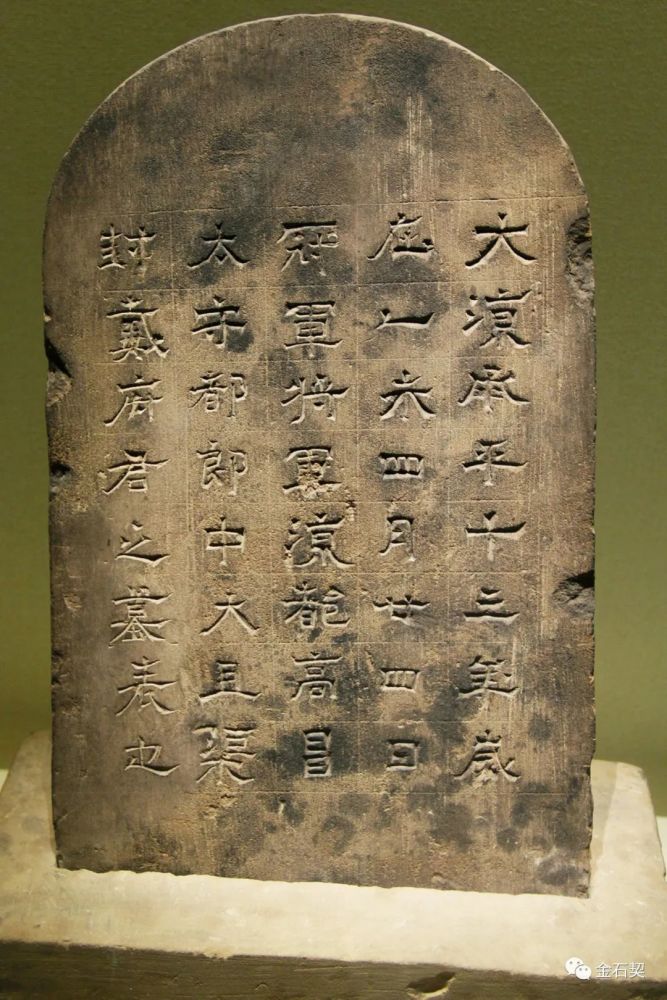 大涼承平十三年歲
在乙未四月廿四日
冠軍將軍涼都高昌
太守都郎中大且渠
封戴府君之墓表也
金石契